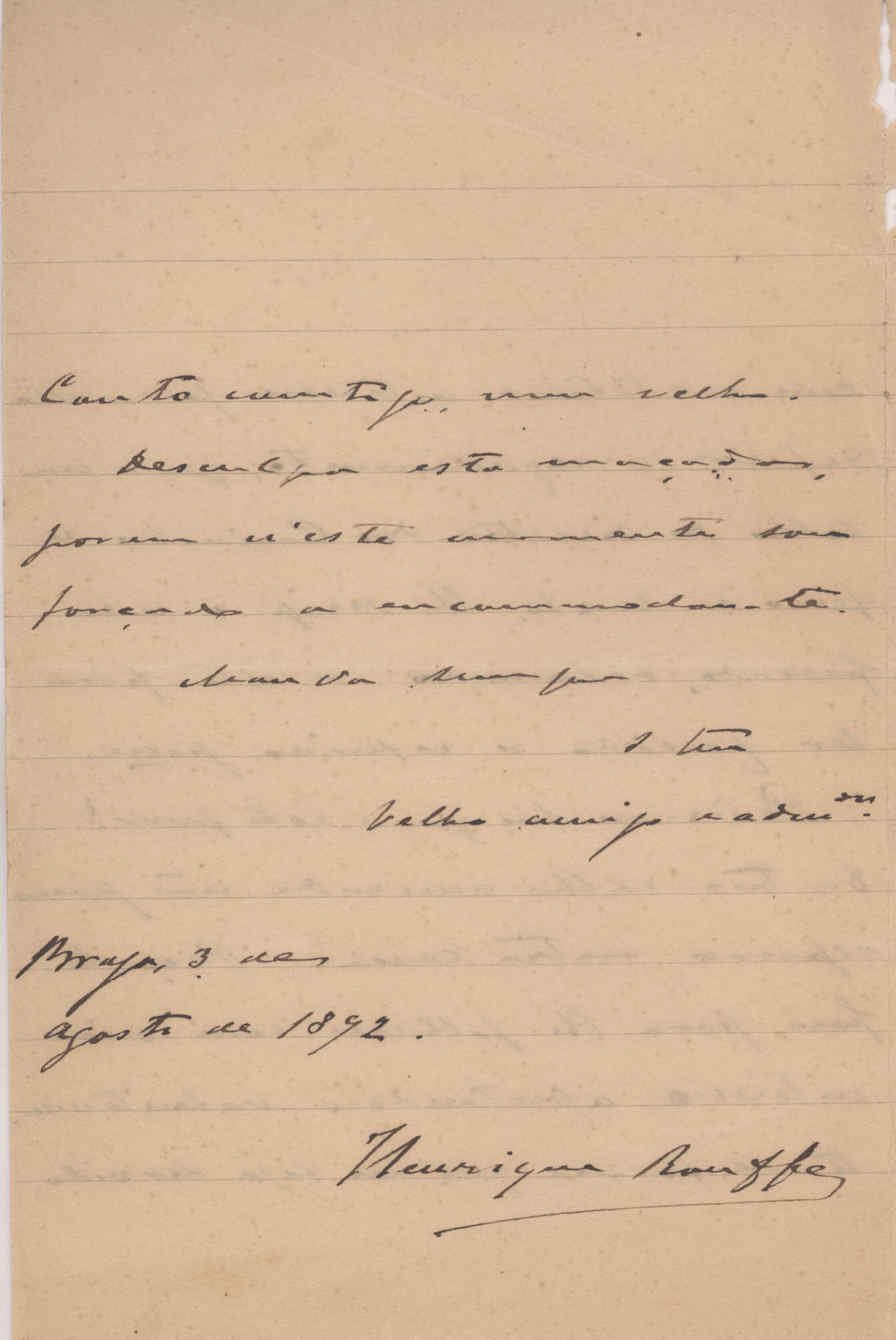 Conto comtigo, meu velho.
Desculpa esta maçada,
porem n'este momento sou
forçado a encommodar-te.
Manda sempre
o teu
Velho amigo e adm.dor
Braga, 3 de
agosto de 1892.
Henrique